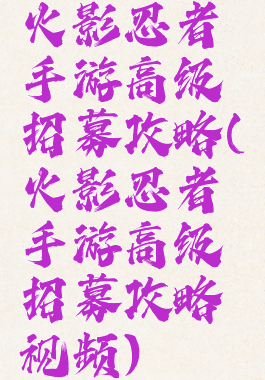 火影忍者
手游高级
招募攻略(
火影忍者
手游高级
招募攻略
视频)